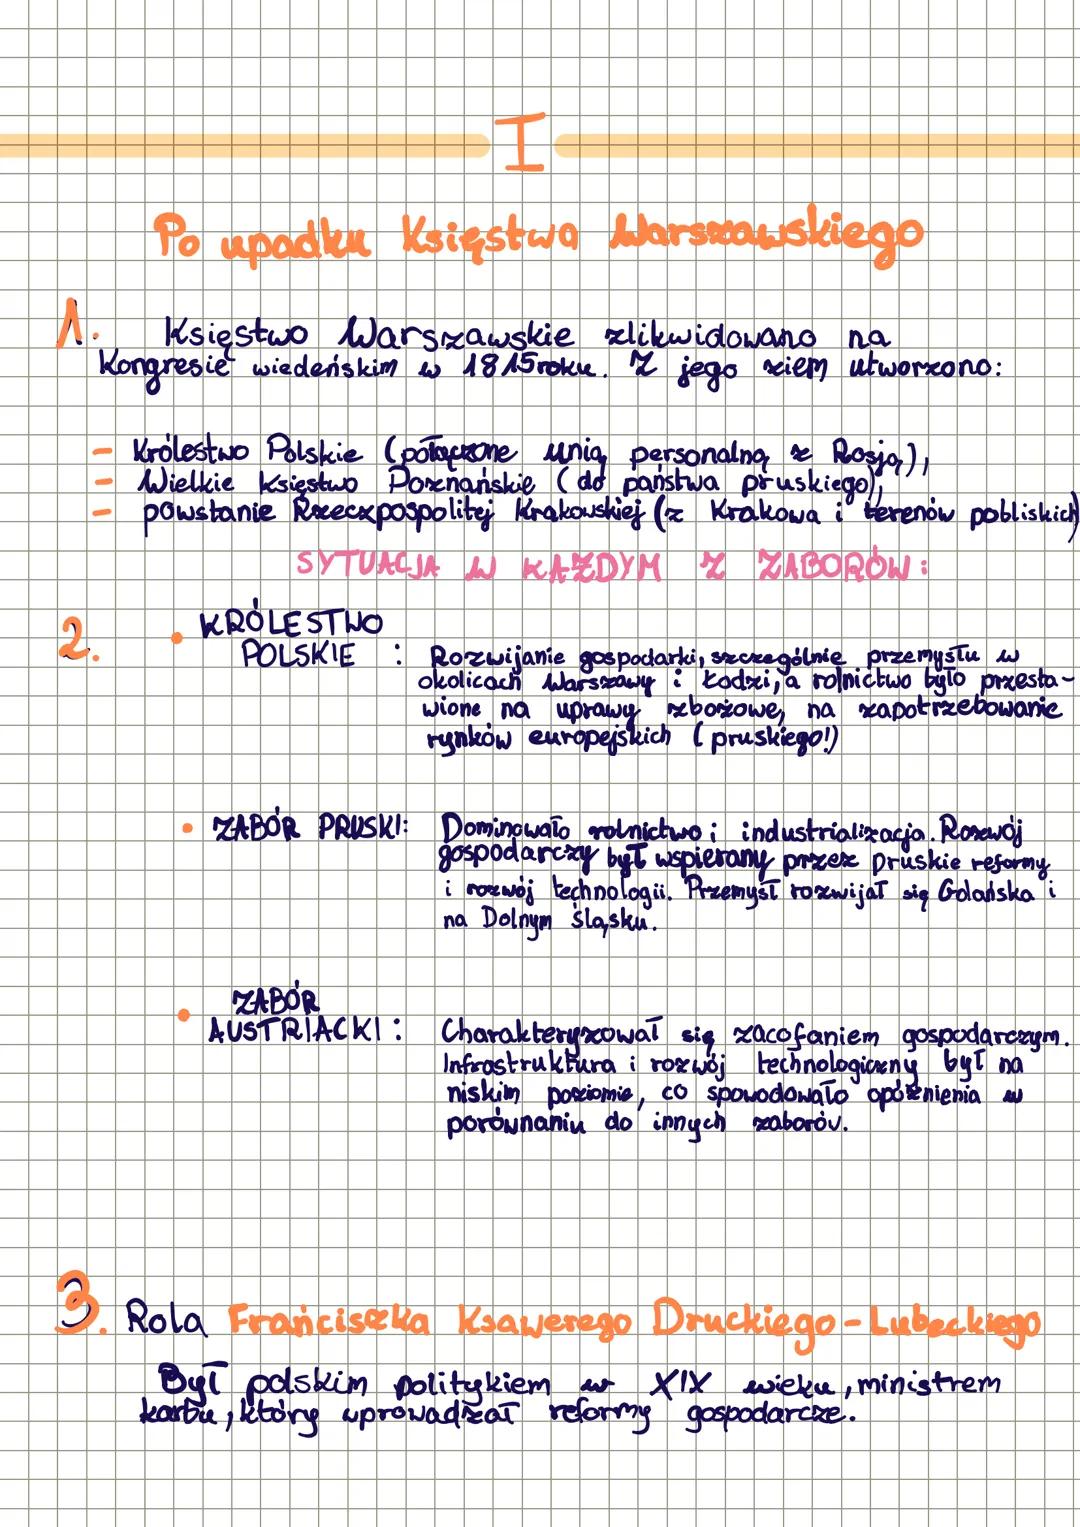 I
Po upadku Księstwa Warszawskiego
1. Księstwo Warszawskie zlikwidowano na
Kongresie wiedeńskim w 1815 roku. Z jego ziem utworzono:
- Królestwo Polskie (połączone unią personalną z Rosją),
- Wielkie Księstwo Poznańskie (do państwa pruskiego),
- powstanie Rzeczpospolitej Krakowskiej (z Krakowa i terenów pobliskich)
SYTUACJA W KAŻDYM Z ZABORÓW:
2. • KRÓLESTWO
POLSKIE : Rozwijanie gospodarki, szczególnie przemysłu w
okolicach Warszawy i Łodzi, a rolnictwo było przesta-
wione na uprawy zbożowe, na zapotrzebowanie
rynków europejskich (pruskiego!)
• ZABÓR PRUSKI: Dominowało rolnictwo i industrializacja. Rozwój
gospodarczy był wspierany przez pruskie reformy
i rozwój technologii. Przemysł rozwijał się Gdańska i
na Dolnym śląsku.
• ZABÓR
AUSTRIACKI: Charakteryzował się zacofaniem gospodarczym.
Infrastruktura i rozwój technologiczny był na
niskim poziomie, co spowodowało opóźnienia w
porównaniu do innych zaborów.
3. Rola Franciszka Ksawerego Druckiego-Lubeckiego
Był polskim politykiem w XIX wieku, ministrem
karbu, który wprowadzał reformy gospodarcze.